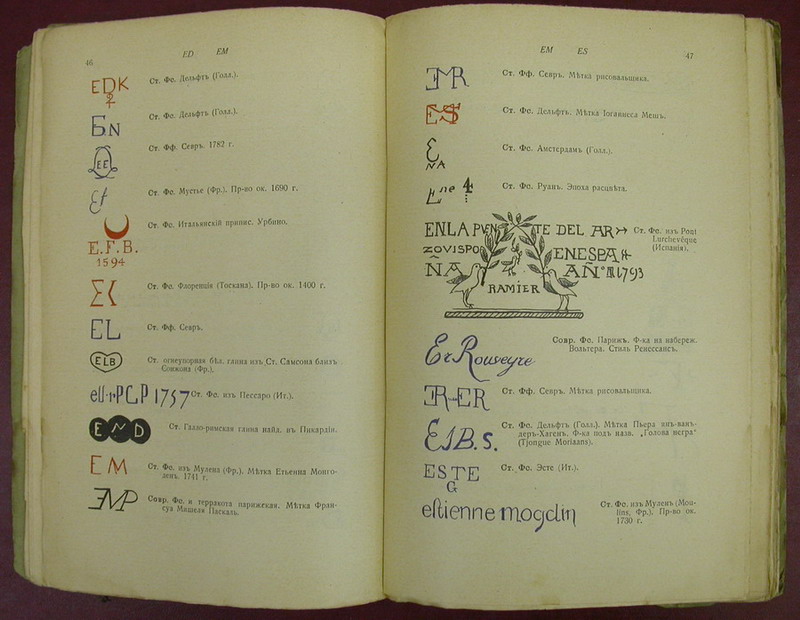 46
ED EM
EDK
Ст. Фс. Дельфтъ (Голл.).
БN
Ст. Фс. Дельфтъ (Голл.).
EE
Ст. Фф. Севръ. 1782 г.
Ст. Фс. Мустье (Фр.). Пр-во ок. 1690 г.
Ст. Фс. Итальянскій припис. Урбино.
E.F.B.
1594
Ст. Фс. Флоренція (Тоскана). Пр-во ок. 1400 г.
EL
Ст. Фф. Севръ.
ELB
Ст. огнеупорная бѣл. глина изъ Ст. Самсона близъ
Сонжона (Фр.).
1757
Ст. Фс. изъ Пессаро (Ит.).
END
Ст. Галло-римская глина найд. въ Пикардіи.
EM
Ст. Фс. изъ Мулена (Фр.). Мѣтка Етьенна Монго-
лень. 1741 г.
Совр. Фс. и терракота парижская. Мѣтка Фран-
суа Мишеля Паскаль.
EM ES
47
Ст. Фф. Севръ. Мѣтка рисовальщика.
ES
Ст. Фс. Дельфтъ. Мѣтка Іоганнеса Мешъ.
E
NA
Ст. Фс. Амстердамъ (Голл.).
Ene 4
Ст. Фс. Руанъ. Эпоха расцвѣта.
ENLA PUEN TE DEL AR
ZOVISPO ENESPA
ÑA AÑ° 1793
RAMIER
Ст. Фс. изъ Pont
Lurchevêque
(Испанія).
Er Rouseyre
Совр. Фс. Парижъ. Ф-ка на набереж.
Вольтера. Стиль Ренессансъ.
Ст. Фф. Севръ. Мѣтка рисовальщика.
Ст. Фс. Дельфтъ (Голл.). Мѣтка Пьера янъ-ванъ-
деръ-Хагенъ. Ф-ка подъ назв. „Голова негра“
(Tjongue Moriaans).
ESTE
G
Ст. Фс. Эсте (Ит.).
estienne mogclin
Ст. Фс. изъ Муленъ (Mou-
lins, Фр.). Пр-во ок.
1730 г.